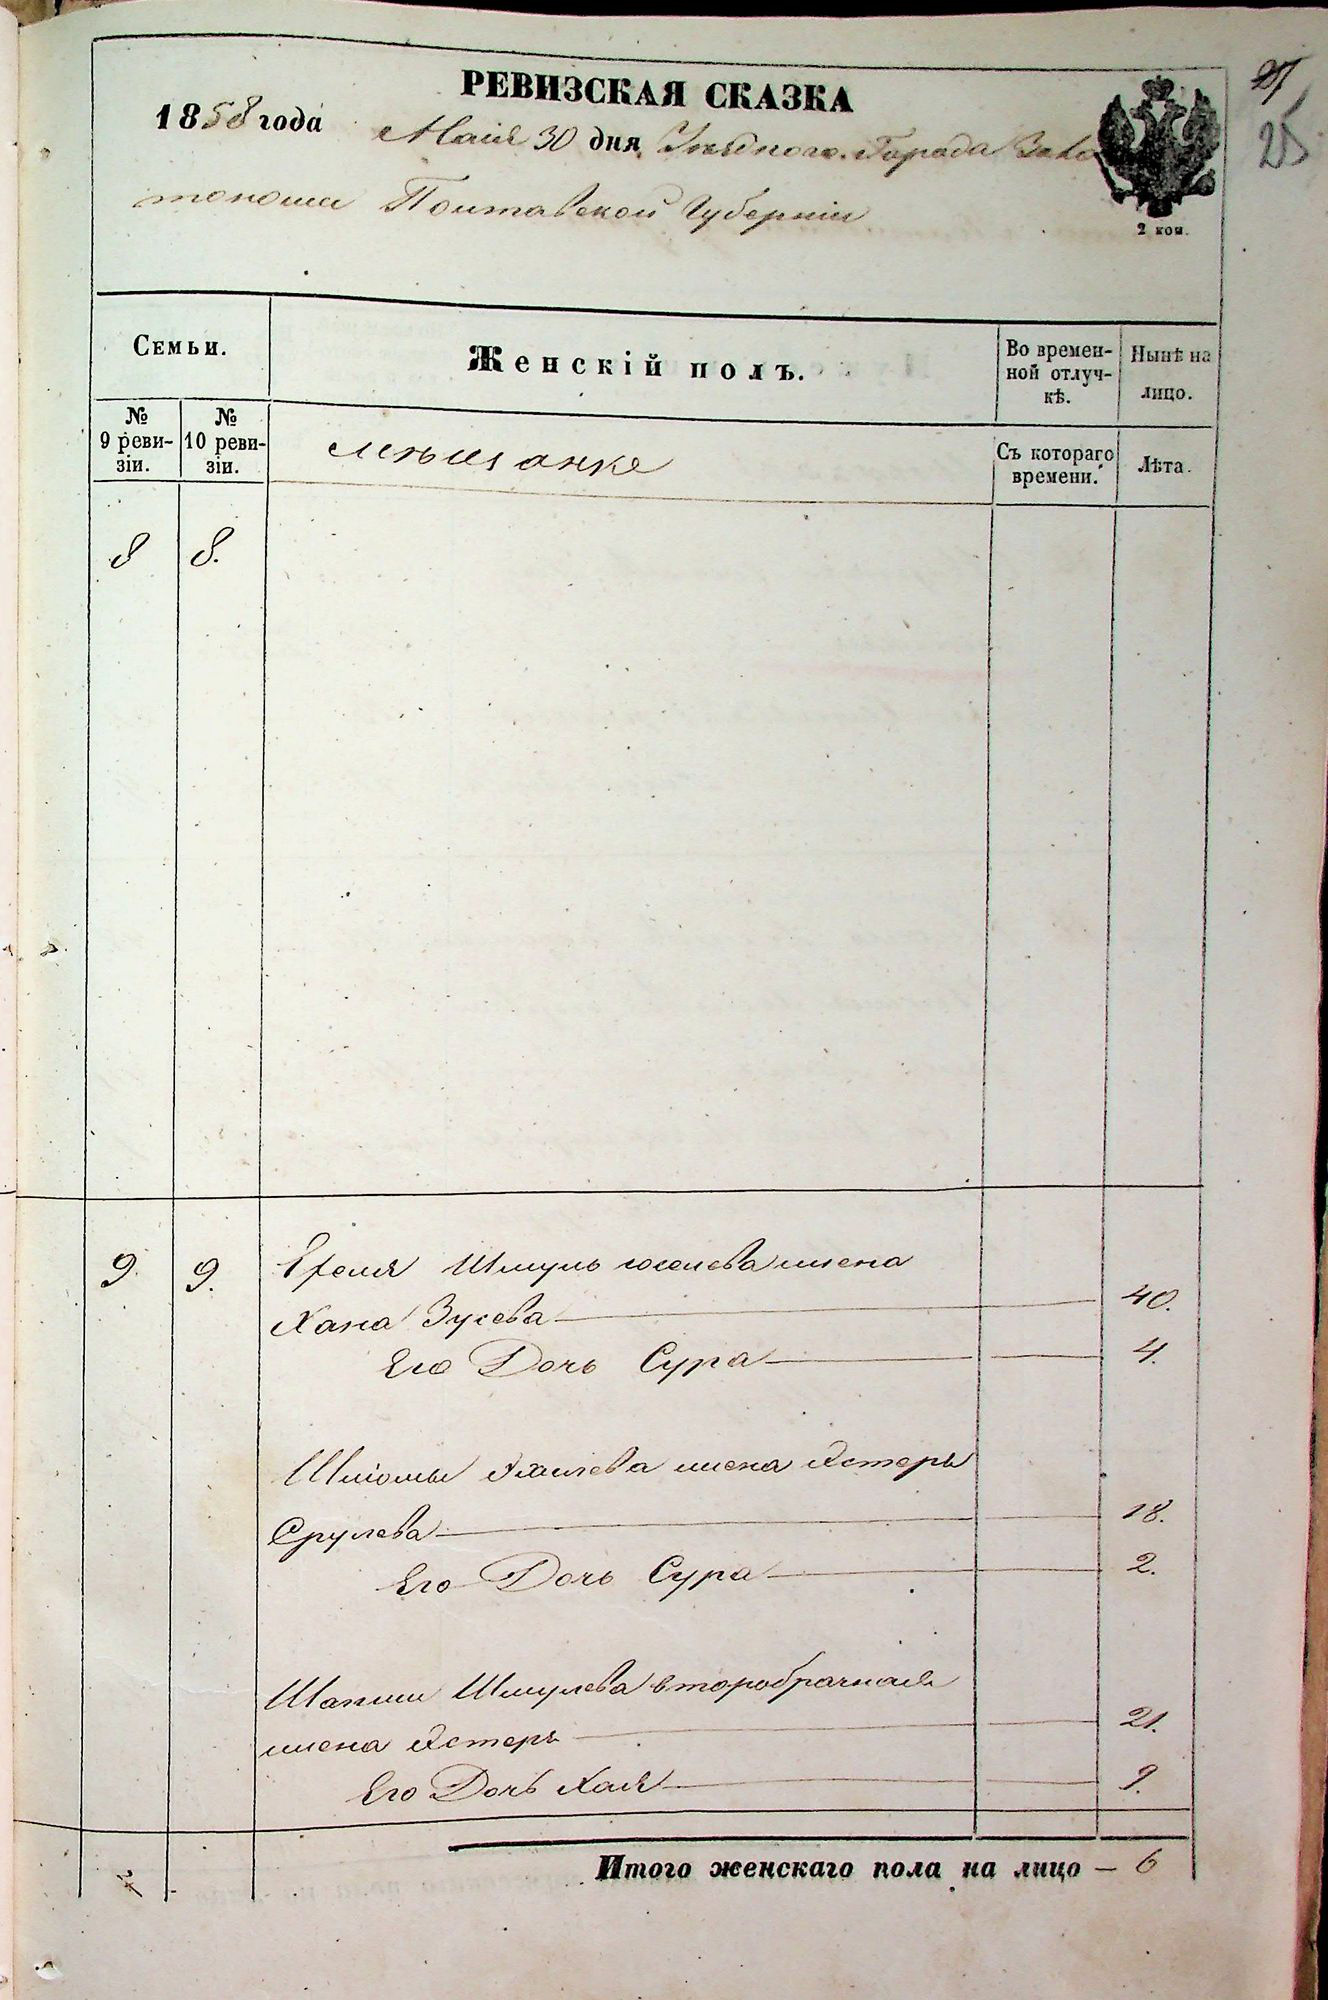 РЕВИЗСКАЯ СКАЗКА
27
25
1858 года Маія 30 дня Уѣзднаго Города Золо
тоноши Полтавской Губерніи
2 коп.
Семьи.
Женскій полъ.
Во времен-
ной отлуч-
кѣ.
Нынѣ на
лицо.
№
9 реви-
зіи.
№
10 реви-
зіи.
мѣщанке
Съ котораго
времени.
Лѣта.
8 8.
9. 9. Шмуль жена
Хана Зусева 40.
Его Дочь Сура 4.
Шліомы жена Эстеръ
Срулева 18.
Его Дочь Сура 2.
Шмулева второбрачная
жена Эстеръ 21.
Его Дочь Хая 9.
Итого женскаго пола на лицо — 6